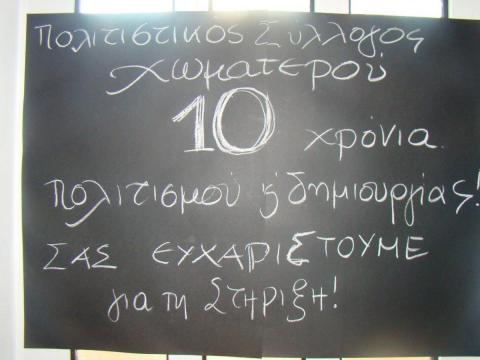 Πολιτιστικος Σύλλογος
Χωματερού
10 χρόνια
Πολιτισμού ϗ δημιουργίας!
ΣΑΣ ΕΥΧΑΡΙΣΤΟΥΜΕ
για τη ΣΤΗΡΙΞΗ!